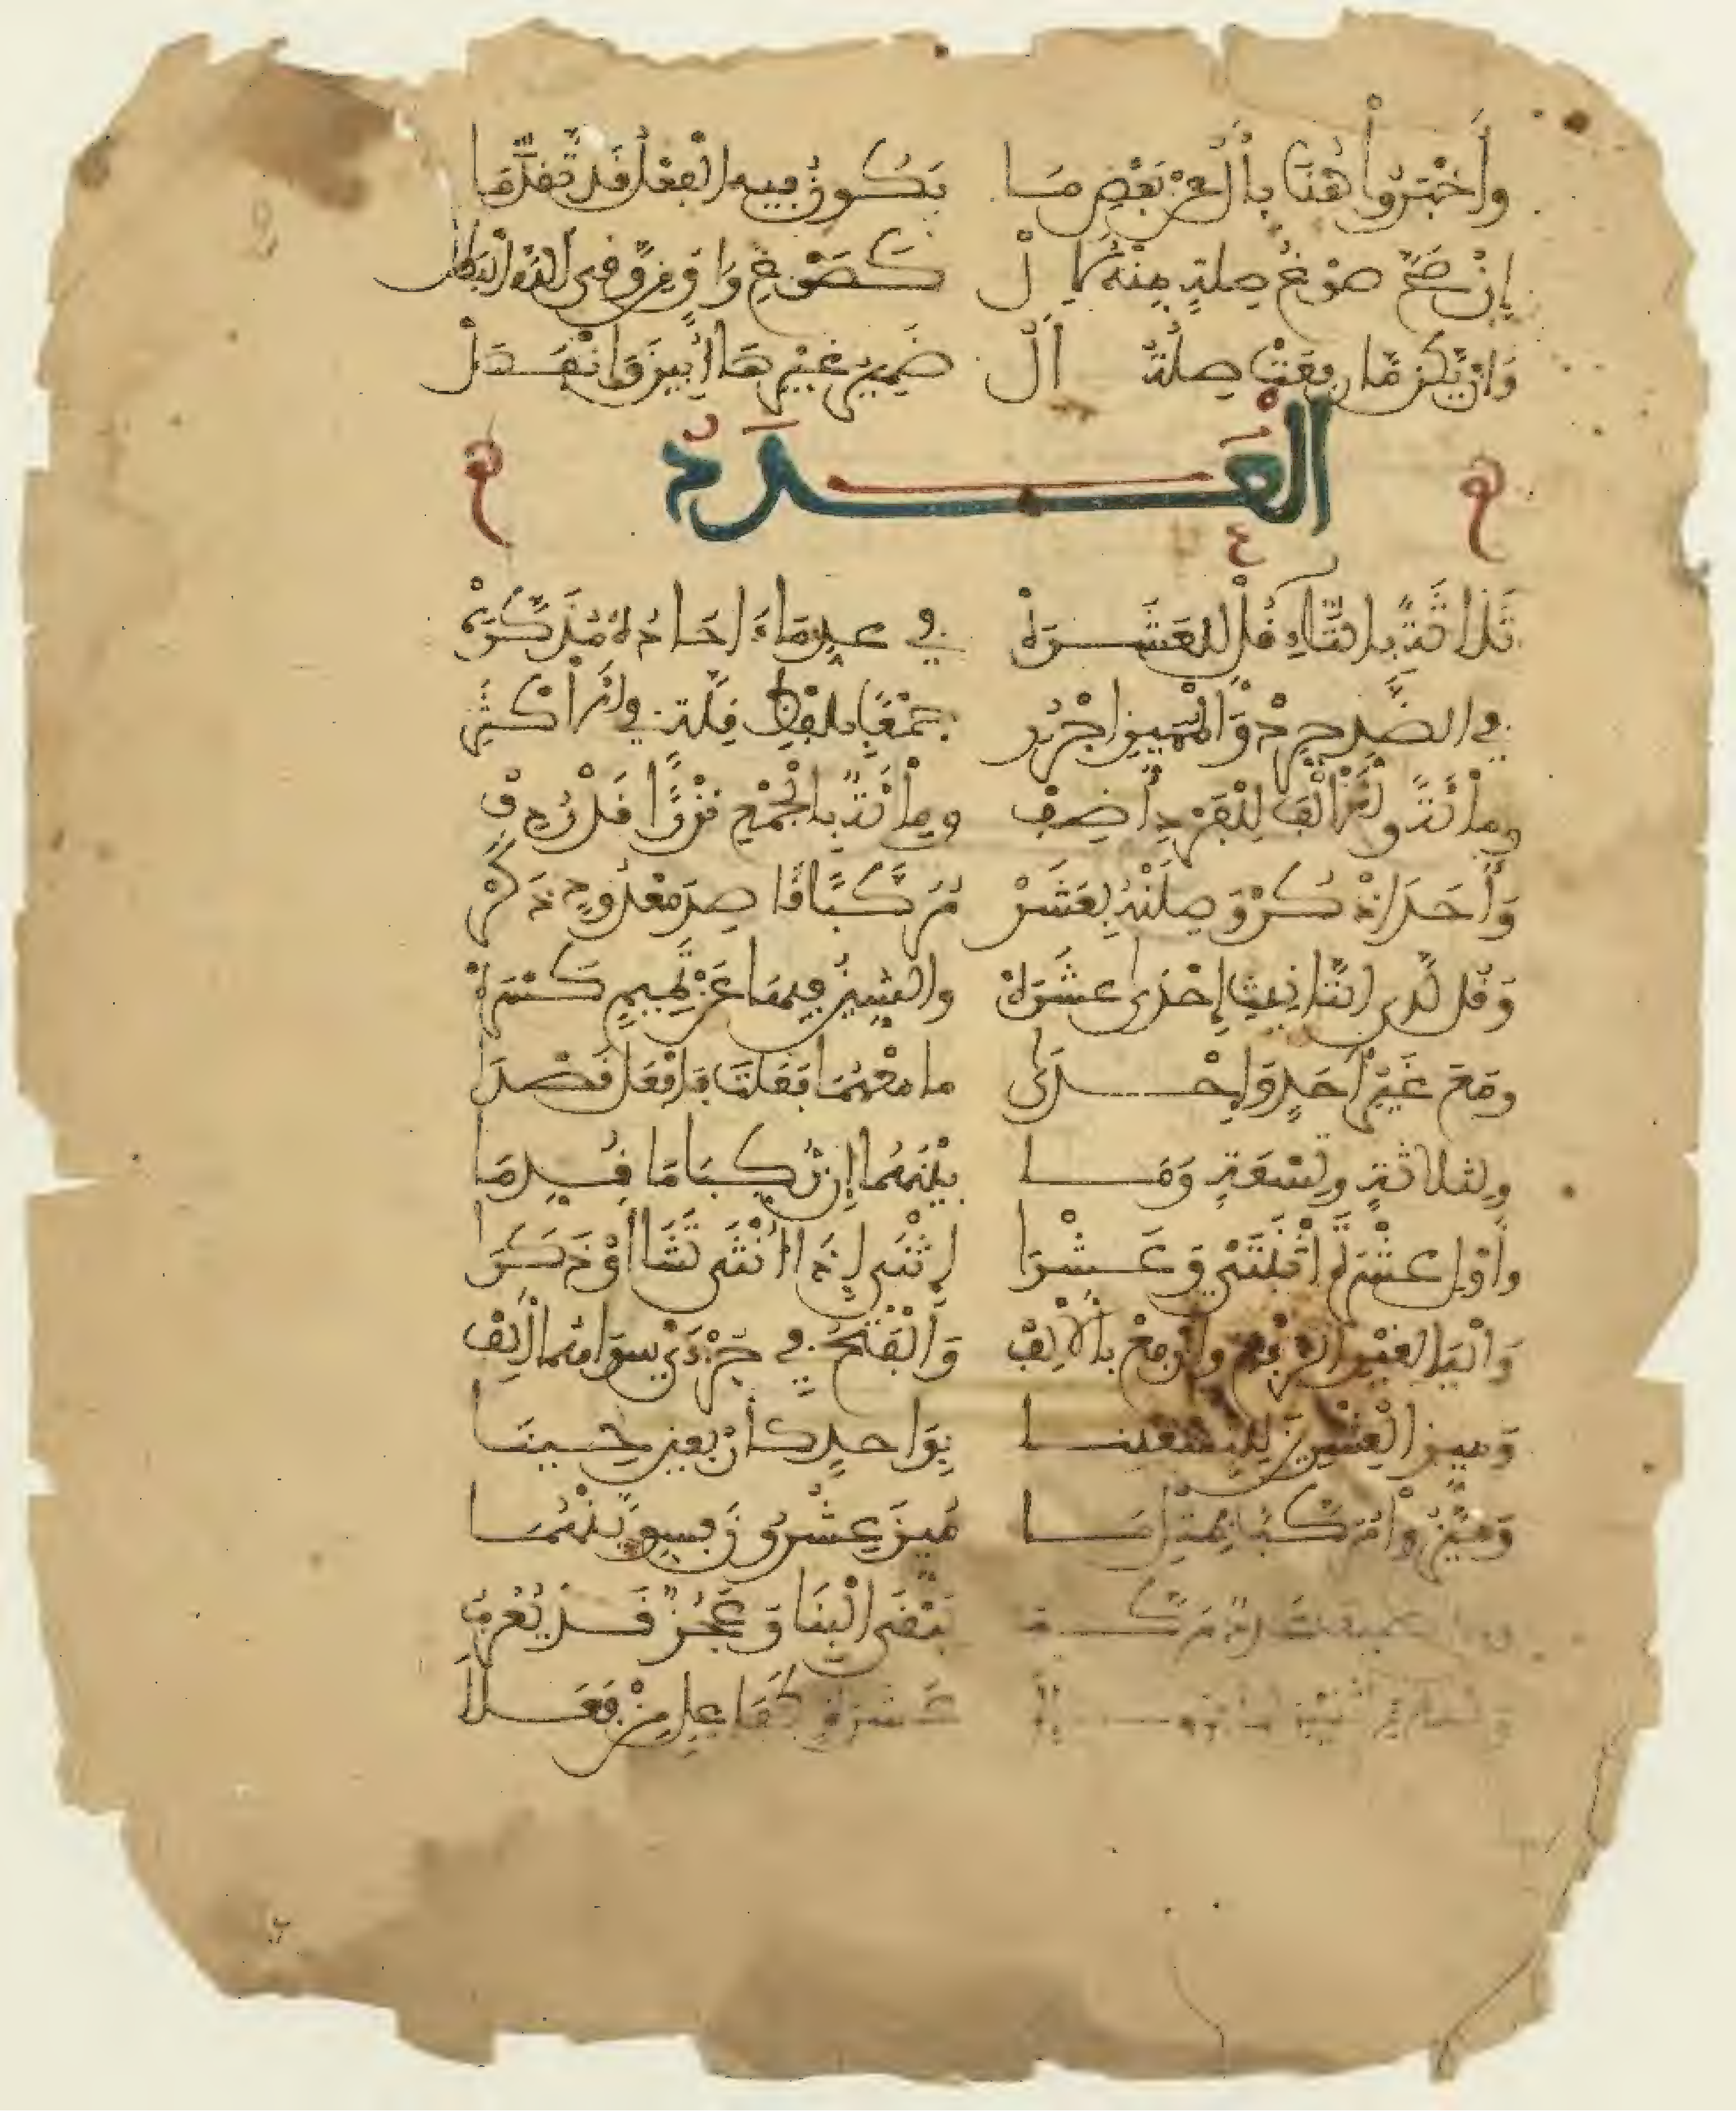 وَأَخْبَرُوا هُنَا بِأَلْ عَنْ بَعْضِ مَا يَكُونُ فِيهِ الْفِعْلُ قَدْ تَقَدَّمَا
إِنْ صَحَّ صَوْغُ صِلَةٍ مِنْهُ لِأَلْ كَصَوْغِ وَاقٍ مِنْ وَقَى اللَّهُ الْبَطَلْ
وَإِنْ يَكُنْ مَا رَفَعَتْ صِلَةُ أَلْ ضَمِيرَ غَيْرِهَا أُبِينَ وَانْفَصَلْ
الْعَدَدُ
ثَلَاثَةً بِالتَّاءِ قُلْ لِلْعَشَرَهْ فِي عَدِّ مَا ءَاحَادُهُ مُذَكَّرَهْ
فِي الضِّدِّ جَرِّدْ وَالْمُمَيِّزَ اجْرُرِ جَمْعًا بِلَفْظِ قِلَّةٍ فِي الْأَكْثَرِ
وَمِائَةً وَالْأَلْفَ لِلْفَرْدِ أَضِفْ وَمِائَةٌ بِالْجَمْعِ نَزْرًا قَدْ رُدِفْ
وَأَحَدَ اذْكُرْ وَصِلَنْهُ بِعَشَرْ مُرَكَّبًا قَاصِدَ مَعْدُودٍ ذَكَرْ
وَقُلْ لَدَى التَّانِيثِ إِحْدَى عَشْرَهْ وَالشِّينُ فِيهَا عَنْ تَمِيمٍ كَسْرَهْ
وَمَعَ غَيْرِ أَحَدٍ وَإِحْدَى مَا مَعْهُمَا فَعَلْتَ فَافْعَلْ قَصْدَا
وَلِثَلَاثَةٍ وَتِسْعَةٍ وَمَا بَيْنَهُمَا إِنْ رُكِّبَا مَا قُدِّمَا
وَأَوْلِ عَشْرَةَ اثْنَتَيْ وَعَشَرَا اثْنَيْ إِذَا أُنْثَى تَشَا أَوْ ذَكَرَا
وَالْيَا لِغَيْرِ الرَّفْعِ وَارْفَعْ بِالْأَلِفْ وَالْفَتْحُ فِي جُزْءَيْ سِوَاهُمَا أُلِفْ
وَمَيِّزِ الْعِشْرِينَ لِلتِّسْعِينَا بِوَاحِدٍ كَأَرْبَعِينَ حِينَا
وَمَيَّزُوا مُرَكَّبًا بِمِثْلِ مَا مُيِّزَ عِشْرُونَ فَسَوِّيَنْهُمَا
يَبْقَى الْبِنَا وَعَجُزٌ قَدْ يُعْرَبُ
عَشَرَةٍ كَفَاعِلٍ مِنْ فَعَلَا